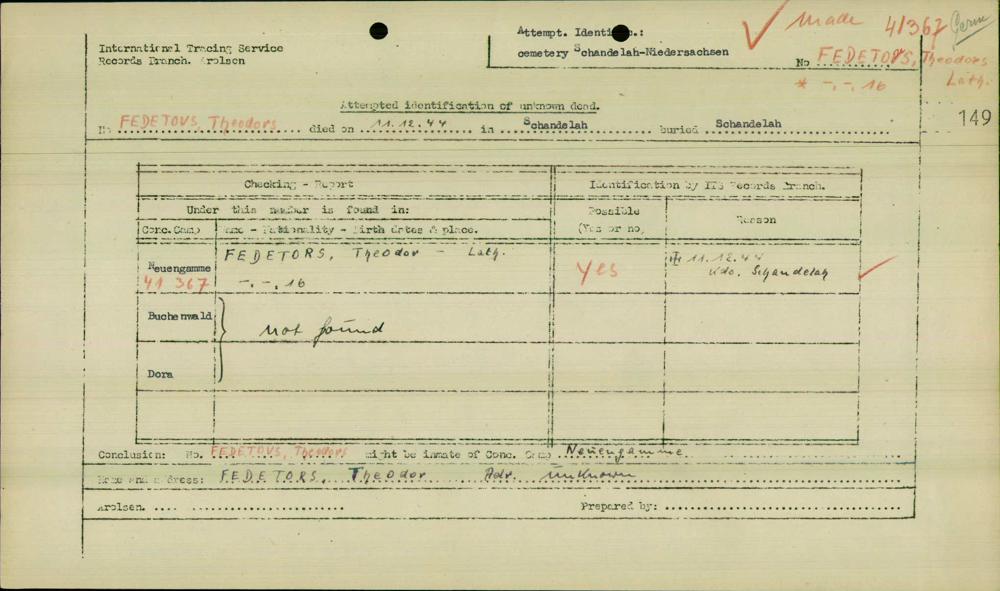 made 41367 Germ
International Tracing Service
Records Branch. Arolsen
Attempt. Identific.:
cemetery Schandelah-Niedersachsen
No FEDETOVS, Theodors
* -.-. 16 Lath.
149
Attempted identification of unknown dead.
No FEDETOVS, Theodors died on 11.12.44 in Schandelah buried Schandelah
Checking - Report
Identification by ITS Records Branch.
Under this number is found in:
Possible
(Yes or no)
Reason
Conc. Camp
Name - Nationality - Birth dates & place.
Neuengamme
41 367
FEDETORS, Theodor - Lath.
-.-. 16
Yes
11.12.44
Kdo. Schandelah
Buchenwald
not found
Dora
Conclusion: No. FEDETOVS, Theodors might be inmate of Conc. Camp Neuengamme
Name and address: FEDETORS, Theodor Adr. unknown
Arolsen.
Prepared by: